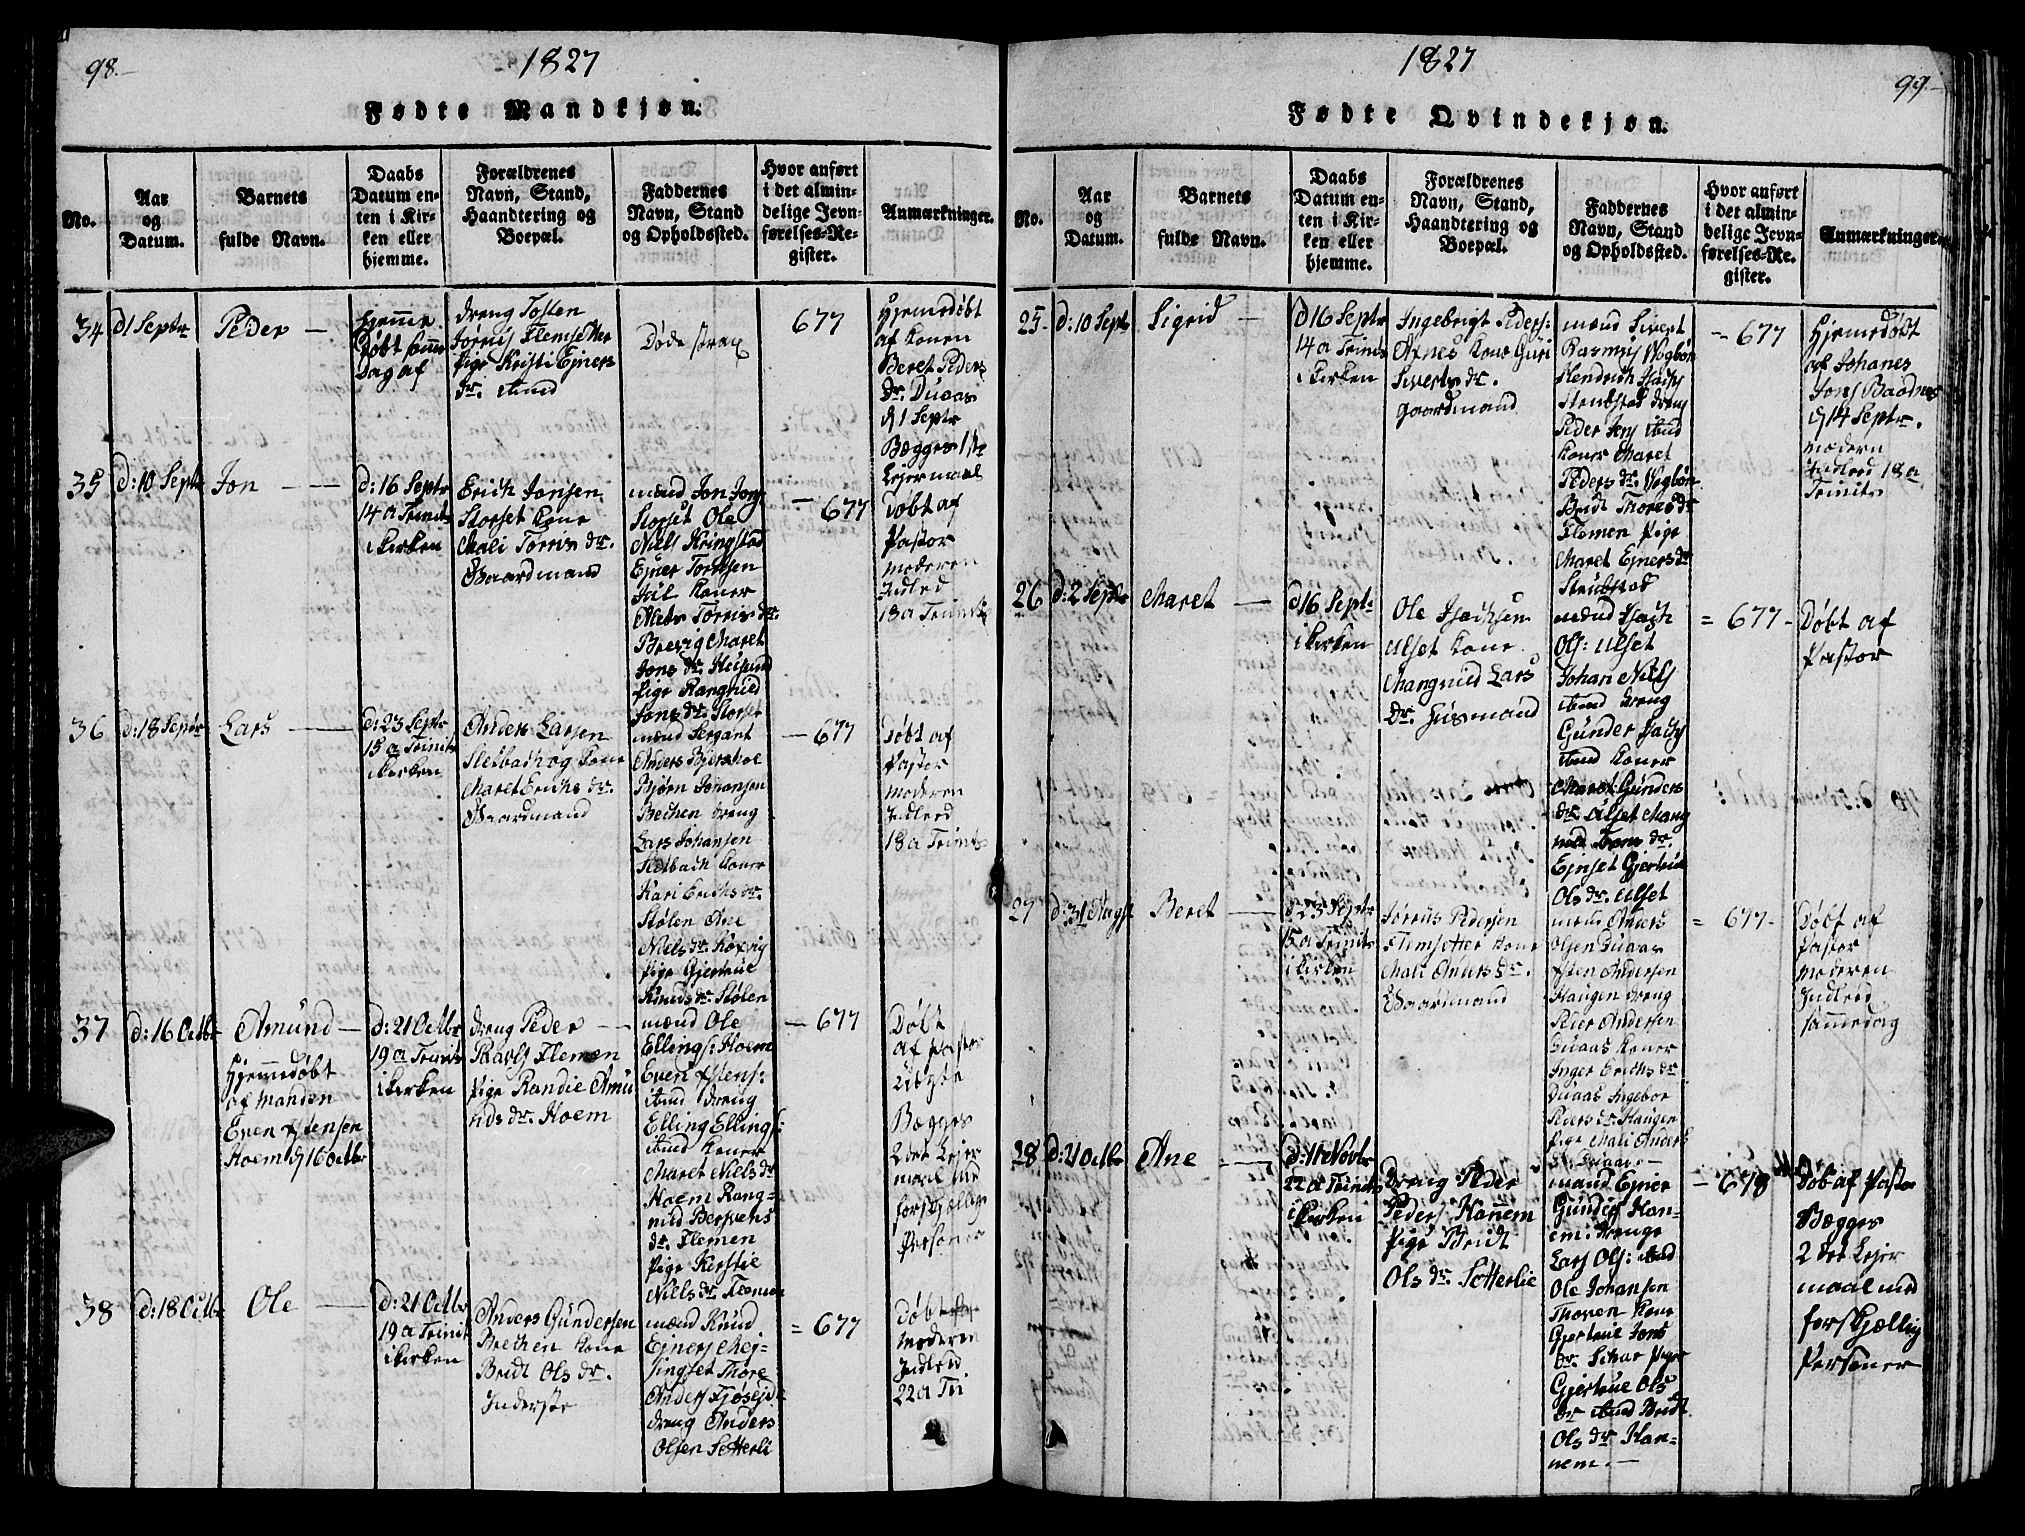 98.
1827
Fødte Mandkjøn.
No.
Aar
og
Datum.
Barnets
fulde Navn.
Daabs
Datum en-
ten i Kir-
ken eller
hjemme.
Forældrenes
Navn, Stand,
Haandtering og
Boepæl.
Faddernes
Navn, Stand
og Opholdssted.
Hvor anført
i det almin-
delige Jevn-
førelses-Re-
gister.
Anmærkninger.
34
d1 Septr
Peder
Hjemme
døbt samme
Dag af
dreng Tosten
Jørris Flemsetter
Pige Kristi Ejners
dr. ibind
Døde strax
677
Hjemedøbt
af Konen
Beret Peders
dr. Duaas
d1 Septr
Bægges 1ste
Lejermaal
35
d:10 Septr
Jon
d:16 Septr
14 a Trinits
i kirken
Erich Jonsen
Storset Kone
Mali Torris dr.
Gaardmand
mænd Jon Jons
Storset Ole
Niels Kringstad
Ejner Torrisen
Kaner
Mets Torris dr.
Brevig Maret
Jons dr. Husund
Pige Rangnied
Jons dr. Storset
677
Døbt af
Pastor
moderen
Indled
18 a Trinits
36
d:18 Septr
Lars
d:23 Septr
15 a Trinits
i kirken
Anders Larsen
Stelbachog Kone
Maret Erichs dr.
Gaardmand
mænd Sergant
Anders Bjerskoe
Bjørn Johansen
Bechen dreng
Lars Johansen
Stelbach Koner
Kari Erichs dr.
Stølen Ane
Niels dr. Roxvig
Pige Gjertrue
Knuds dr. Stølen
677
Døbt af
Pastor
moderen
Indleed
18 a Trinits
37
d:16 Octbr
Amund
Hjemmedøbt
af Manden
Even Estensen
Hoem d16 Octbr
d:21 Octbr
19 a Trinits
i kirken
dreng Peder
Flemen
Pige Randie Amu
nds dr. Hoem
mænd Ole
Ellings: Hoem
Even Estens:
ibind dreng
Elling Ellings:
ibind Koner
Maret Niels dr
Hoem Rang-
nied Berseths
dr. Flemen
Pige Kirstie
Niels dr. Flemen
677
Døbt
af Pastor
Bægges
2det Lejer
maal med
forskjellige
Personer
38
d:18 Octbr
Ole
d:21 Octbr
19 a Trinit
i kirken
Anders Gundersen
Brechen Kone
Bridt Ols dr.
Inderste
mænd Knud
Ejners Mej-
singset Thore
Anders Fjøseid
dreng Anders
Olsen Setterli
677
Døbt
Moderen
Indleid
22 a Tri
1827
99.
Fødte Qvindekjøn.
No.
Aar
og
Datum.
Barnets
fulde Navn.
Daabs
Datum en-
ten i Kir-
ken eller
hjemme.
Forældrenes
Navn, Stand,
Haandtering og
Boepæl.
Faddernes
Navn, Stand
og Opholdssted.
Hvor anført
i det almin-
delige Jevn-
førelses-Re-
gister.
Anmærkninger.
25
d:10 Sept
Sigrid
d16 Septr
14 a Trinits
i kirken
Ingebrigt Peders:
Axnes Kone Guri
Siverts dr.
Gaardmand
mænd Sivert
Rasmus Wogbøe
Hendrich Isachs
Strubstad dreng
Peder Jens ibind
Koner Maret
Peders dr. Wogbøe
Bridt Thores dr
Flemen Pige
Maret Ejners dr
Strubstad
677
Hjemedøbt
af Johanes
Jons Baadnes
d14 Septr.
moderen
Indleed 18 a
Trinits
26
d:2 Septr
Maret
d16 Sept:
i kirken
Ole Isachsen
Ulset Kone
Mangnild Lars
Dr. Husmand
mænd Isach
Ols: Ulset
Johan Niels
ibind dreng
Gunder Isachs
ibind Koner
Maret Gunders
dr. Ulset Mang
nild Tron dr.
Ejnset Gjertrue
Ols dr. Ulset
677
Døbt af
Pastor
27
d:31 Augst
Beret
d23 Septr
15 a Trinits
i kirken
Jørris Pedersen
Flemsetter Kone
Mali Anders dr.
Gaardmand
mænd Anders
Olsen Duaas
Esten Andersen
Haugen dreng
Peder Andersen
Duaas Koner
Inger Erichs dr
Duaas Ingebor
Peders dr. Haugen
Pige Mali Anders
dr. Duaas
677
Døbt af
Pastor
moderen
Indleed
sammedag
28
d:21 Octbr
Ane
d:11 Novbr
22 a Trinits
i kirken
dreng Peder
Peders Hannem
Pige Bridt
Ols dr. Setterlie
mænd Ejner
Gunders Han-
em: drenge
Lars Ols: ibind
Ole Johansen
Thorven Kone
Gjertrue Jons
dr. Schar Pige
Gjertrue Ols
dr ibind Bridt
Ols dr Han-
nem.
678
Døb af Pastor
Bægges
2 det Lejer
maal med
forskjællig
Personer